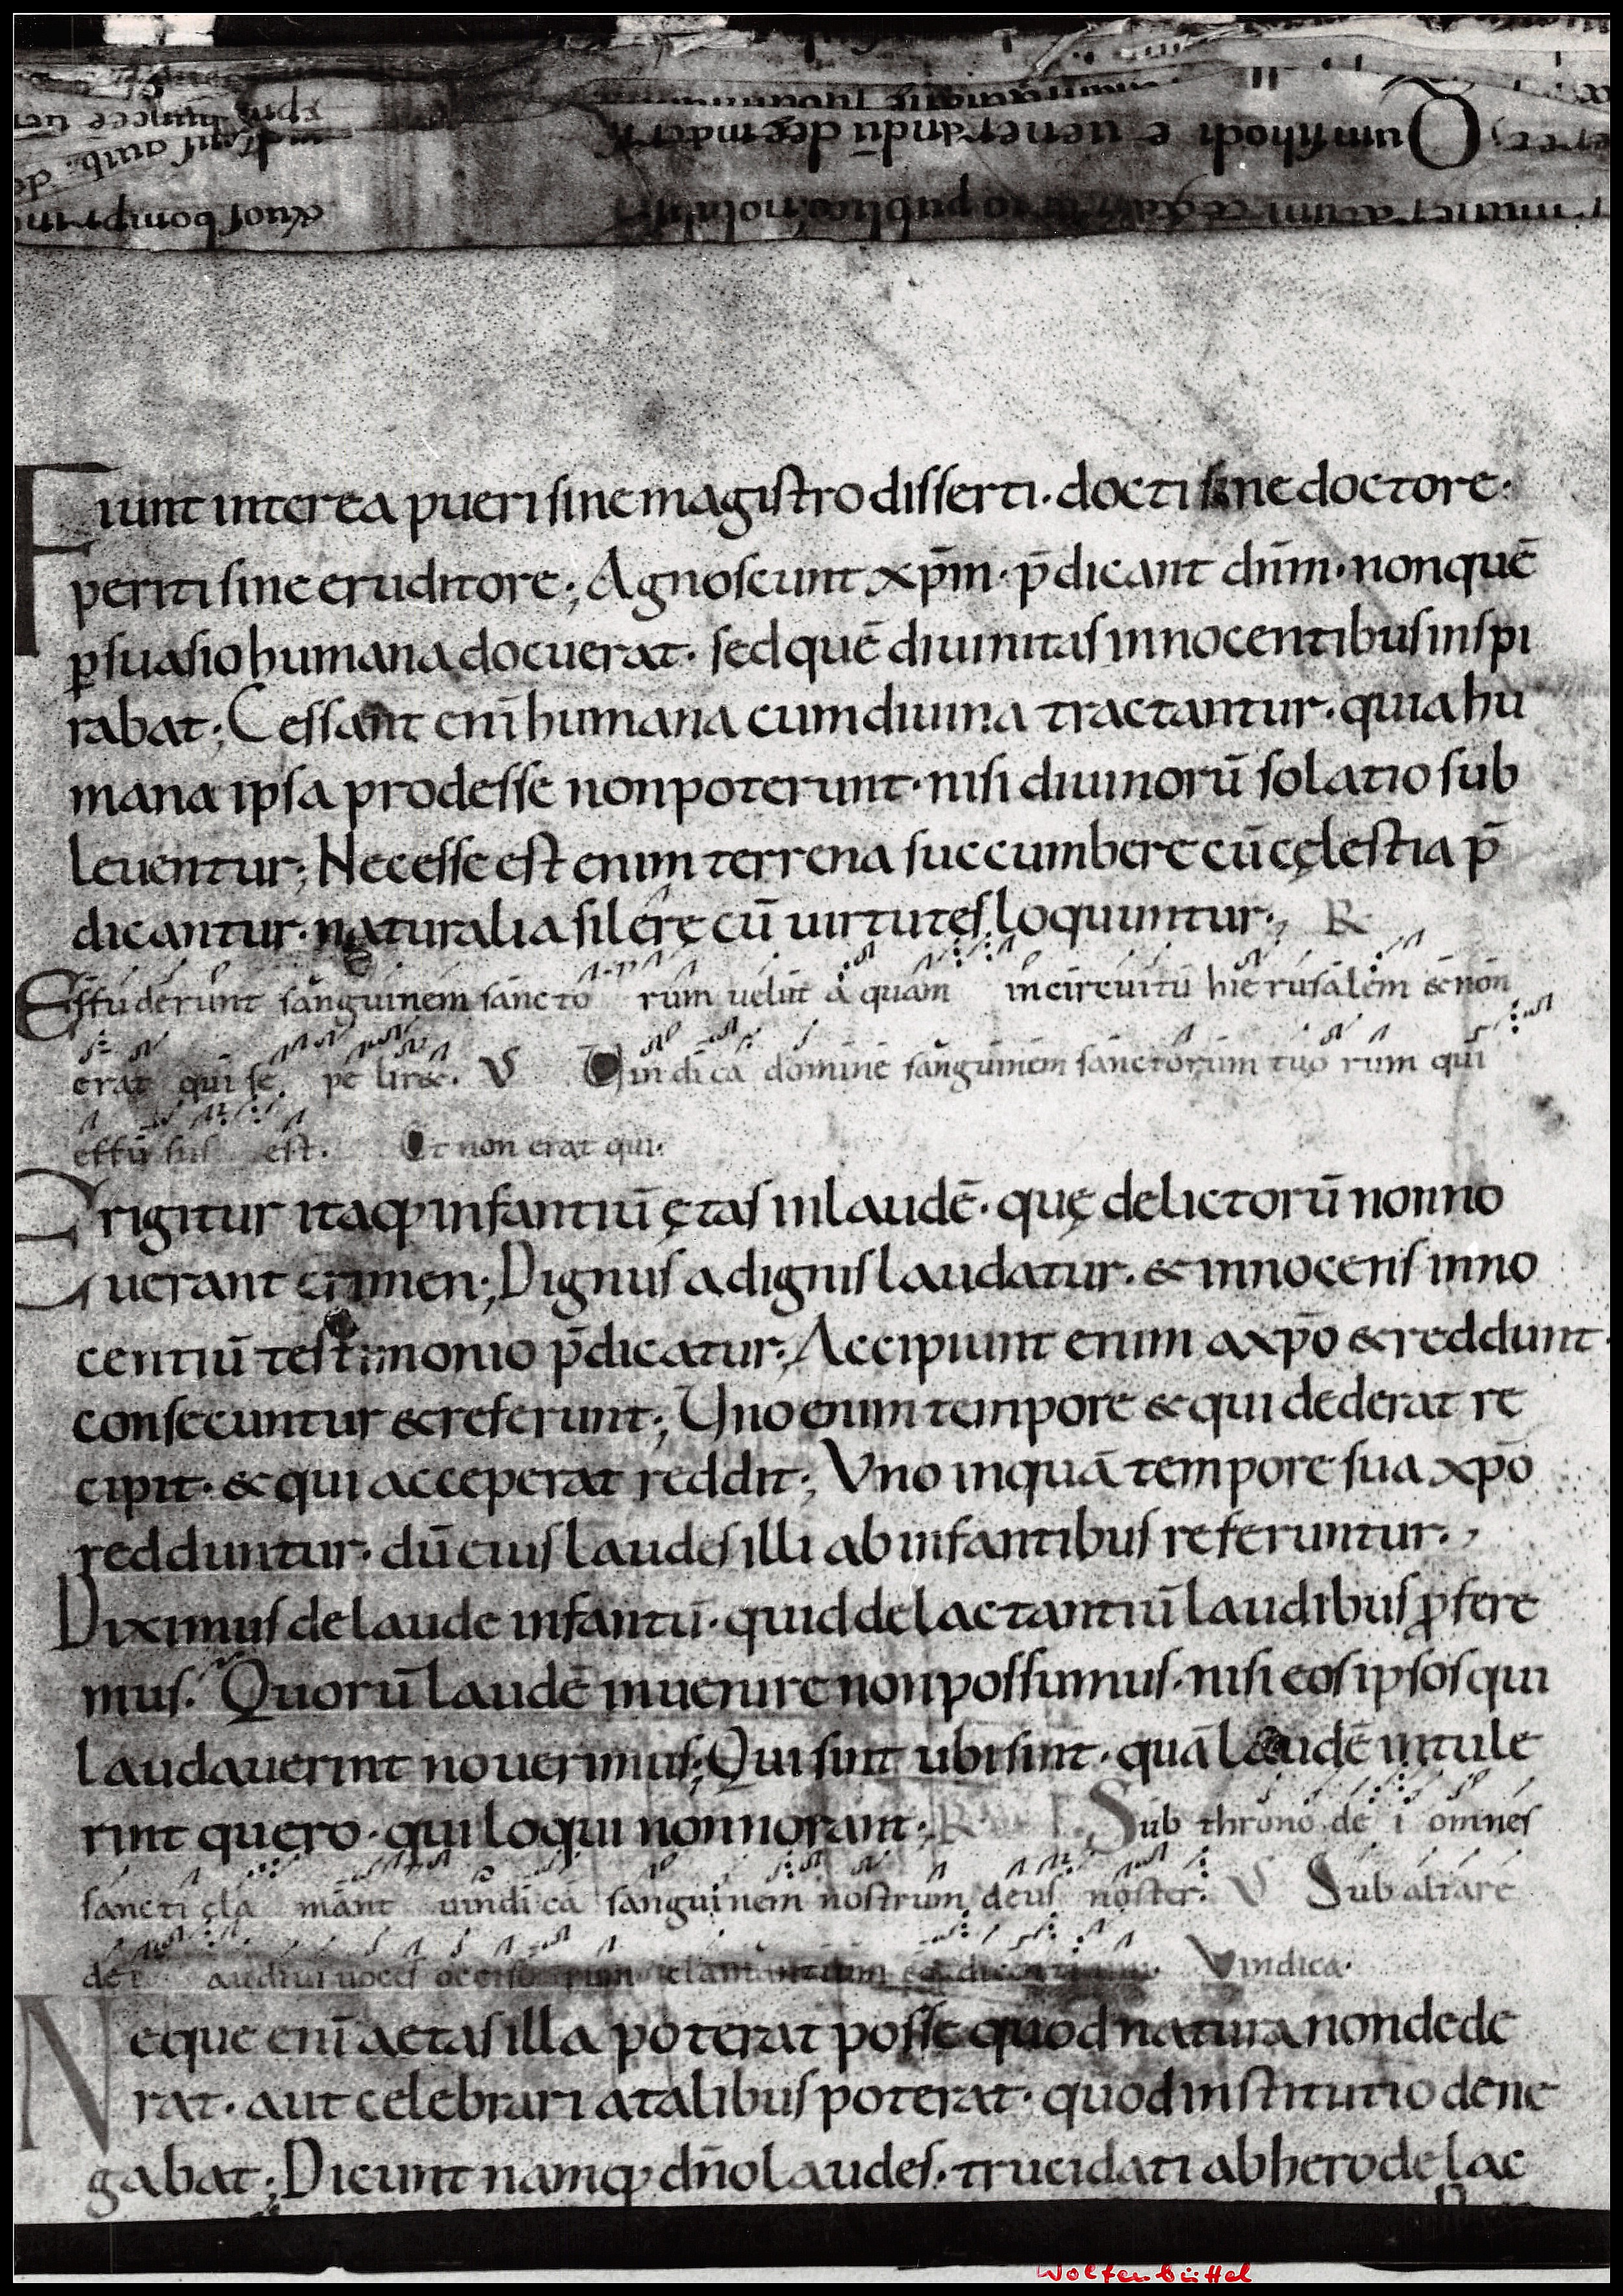 Fiunt interea pueri sine magistro disserti· docti sine doctore·
periti sine eruditore; Agnoscunt xp̄m· p̄dicant dn̄m· non quē
ꝑsuasio humana docuerat· sed quē diuinitas innocentibus inspi
rabat; Cessant enī humana cum diuina tractantur· quia hu
mana ipsa prodesse non poterunt· nisi diuinorū solatio sub
leuentur; Necesse est enim terrena succumbere cū cęlestia p̄
dicantur· naturalia silere cū uirtutes loquuntur; R
Effuderunt sanguinem sancto rum uelut a quam incircuitu hierusalem & non
erat qui se pe liret. V Vindica domine sanguinem sanctorum tuo rum qui
effu sus est. Et non erat qui·
Erigitur itaq; infantiū ętas in laudē· quę delictorū non no
uerant crimen; Dignus a dignis laudatur· & innocens inno
centiū testimonio p̄dicatur; Accipiunt enim a xp̄o & reddunt·
consecuntur & referunt; Uno enim tempore & qui dederat re
cipit· & qui acceperat reddit; Vno inquā tempore sua xp̄o
redduntur· dū eius laudes illi ab infantibus referuntur·,
Diximus de laude infantū· quid de lactantiū laudibus ꝓfere
mus. Quorū laudē inuenire non possumus· nisi eos ipsos qui
laudauerint nouerimus; Qui sint ubi sint· quā laudē intule
rint quero· qui loqui non norant; R Sub throno de i omnes
sancti cla mant uindi ca sanguinem nostrum deus noster. V Sub altare
dei audiui uoces occiso rum clamantium dicentium. Vindica·
Neque enī aetas illa poterat posse quod natura non dede
rat· aut celebrari a talibus poterat· quod institutio dene
gabat; Dicunt namq; dn̄o laudes· trucidati ab herode lac
Wolfenbüttel